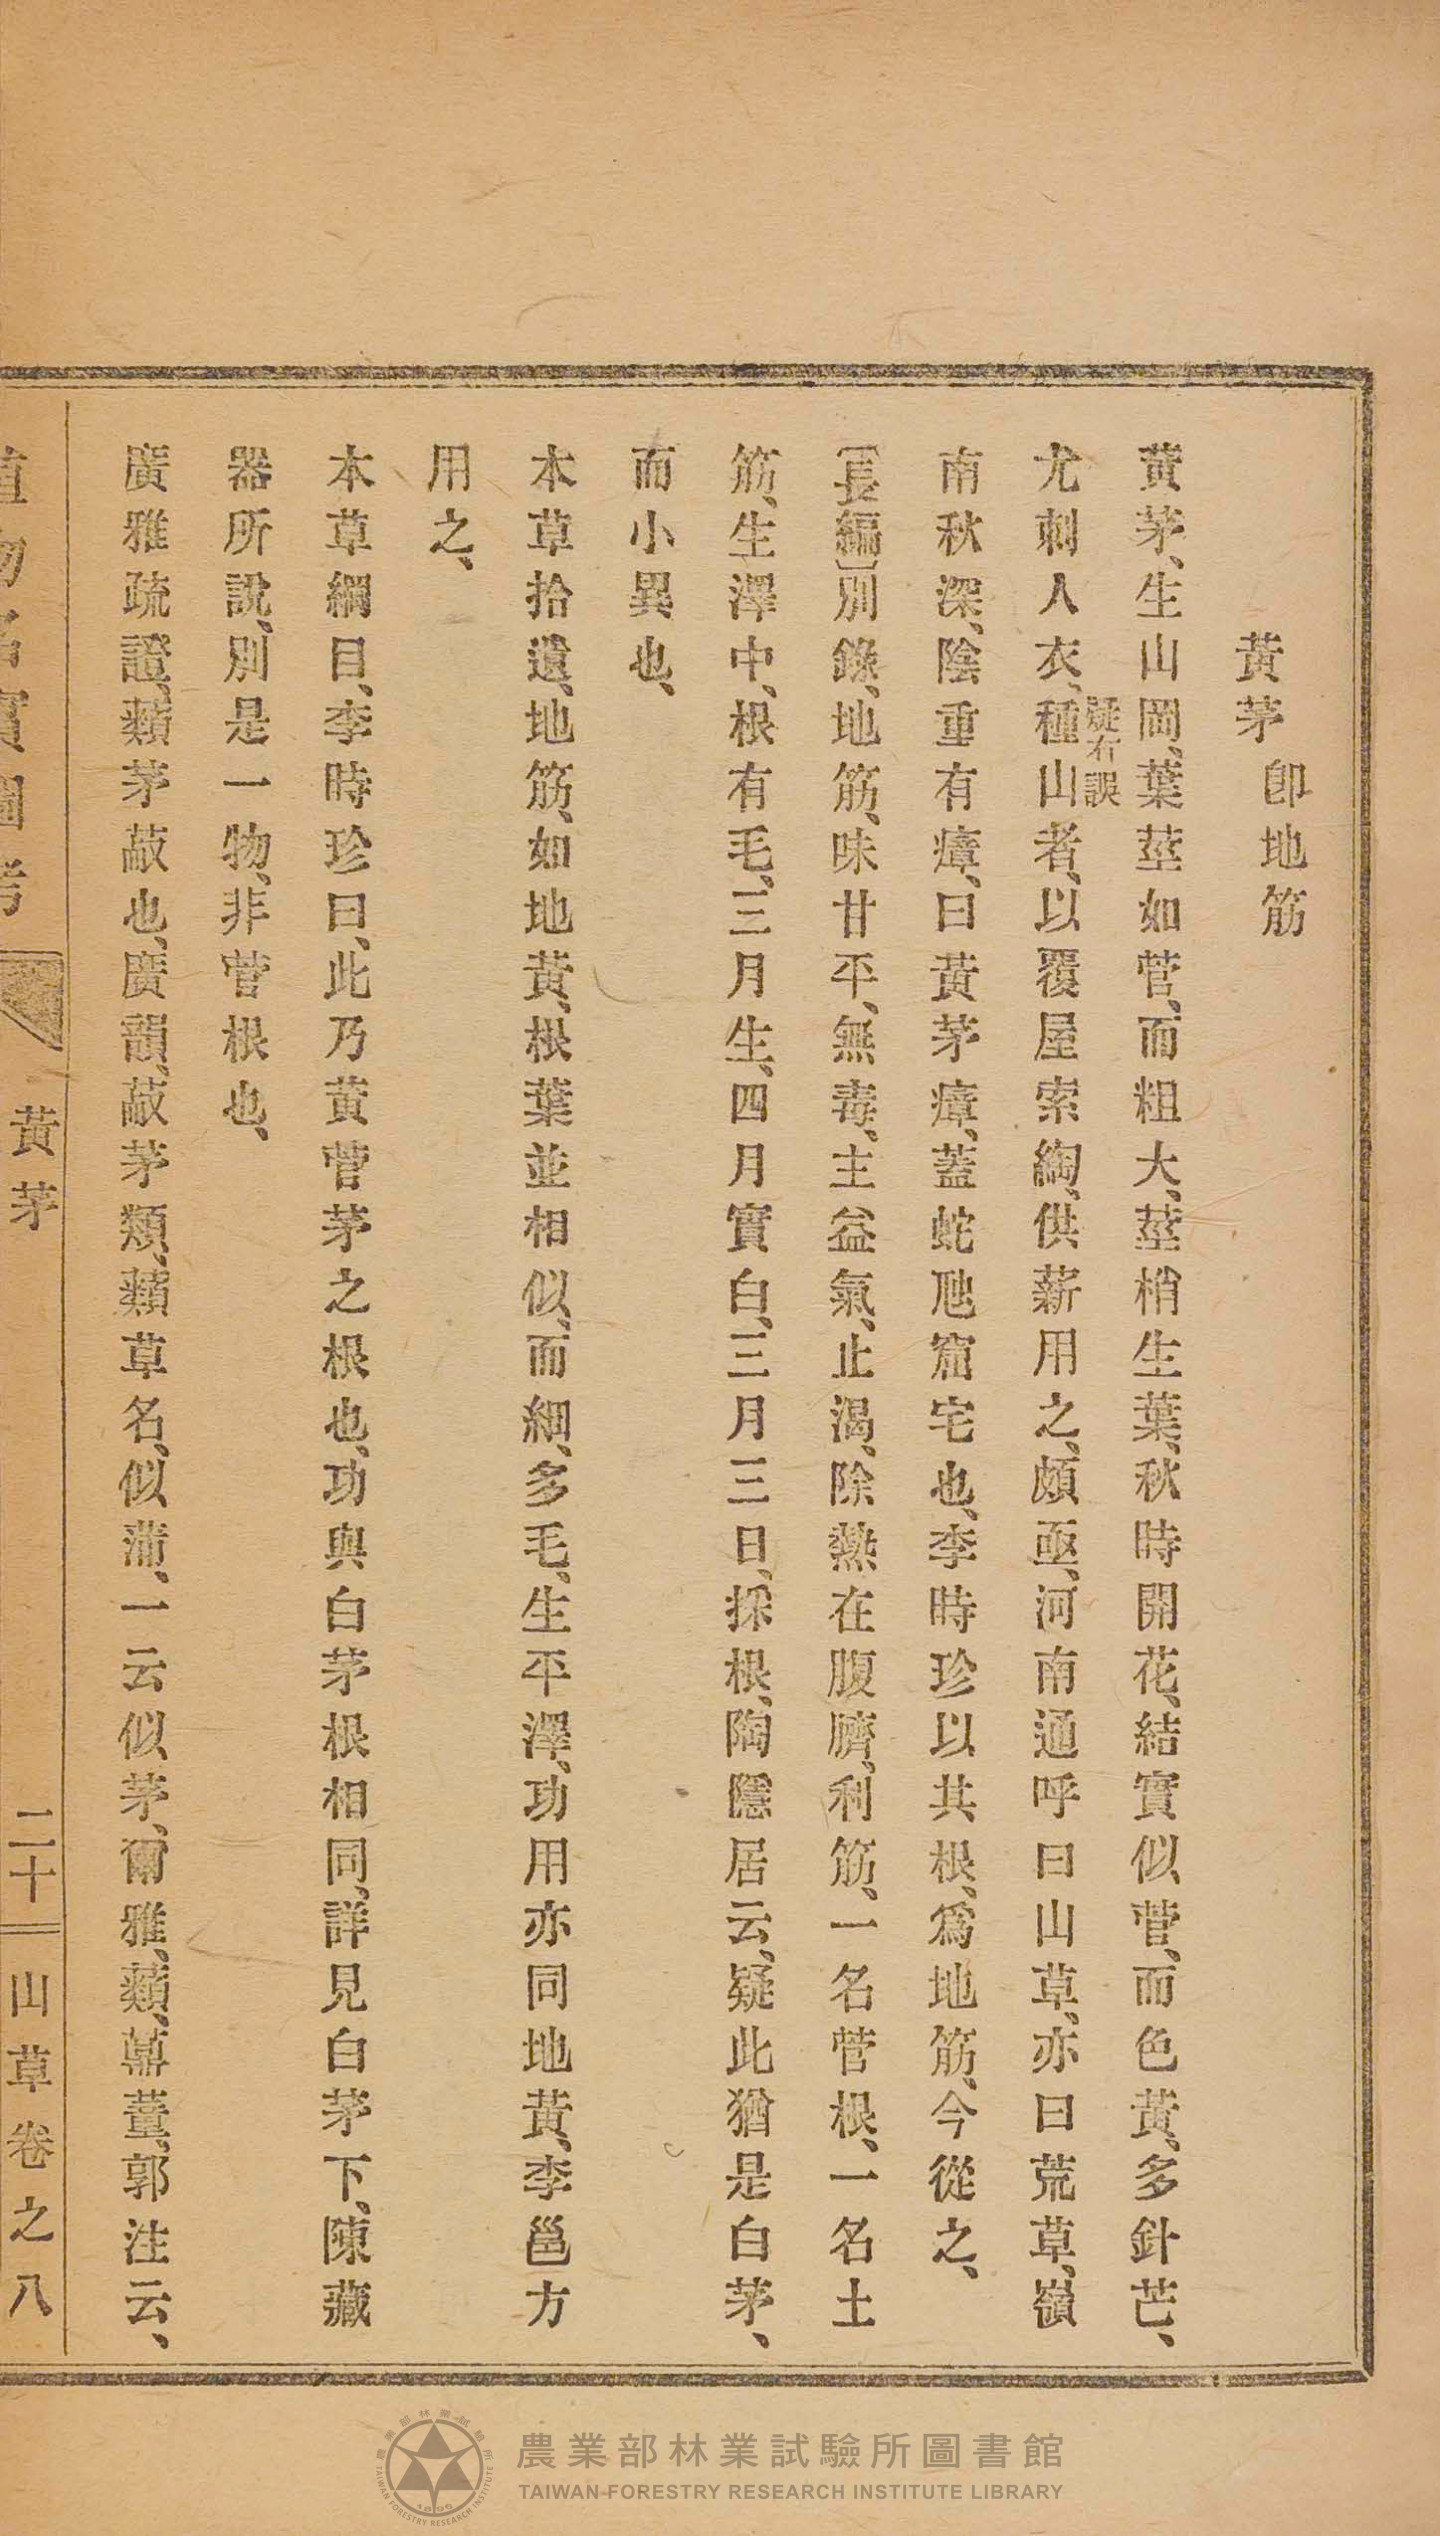 黃茅 卽地筋
黃茅、生山岡、葉莖如菅、而粗大、莖梢生葉、秋時開花、結實似菅、而色黃、多針芒、
尤刺人衣、種疑有誤山者、以覆屋索綯、供薪用之、頗亟、河南通呼曰山草、亦曰荒草、嶺
南秋深、陰重有瘴、曰黃茅瘴、蓋蛇虺窟宅也、李時珍以其根、爲地筋、今從之、
〔長編〕別錄、地筋、味甘平、無毒、主益氣、止渴、除熱在腹臍、利筋、一名菅根、一名土
筋、生澤中、根有毛、三月生、四月實白、三月三日、採根、陶隱居云、疑此猶是白茅、
而小異也、
本草拾遺、地筋、如地黃、根葉並相似、而細、多毛、生平澤、功用亦同地黃、李邕方
用之、
本草綱目、李時珍曰、此乃黃菅茅之根也、功與白茅根相同、詳見白茅下、陳藏
器所說、別是一物、非菅根也、
廣雅疏證、藾茅蔽也、廣韻、蔽茅類、藾草名、似蒲、一云似茅、爾雅、藾、薡蕫、郭注云、
植物名實圖考 黃茅 二十 山草卷之八
農業部林業試驗所圖書館
TAIWAN FORESTRY RESEARCH INSTITUTE LIBRARY
農業部林業試驗所
TAIWAN FORESTRY RESEARCH INSTITUTE
1895